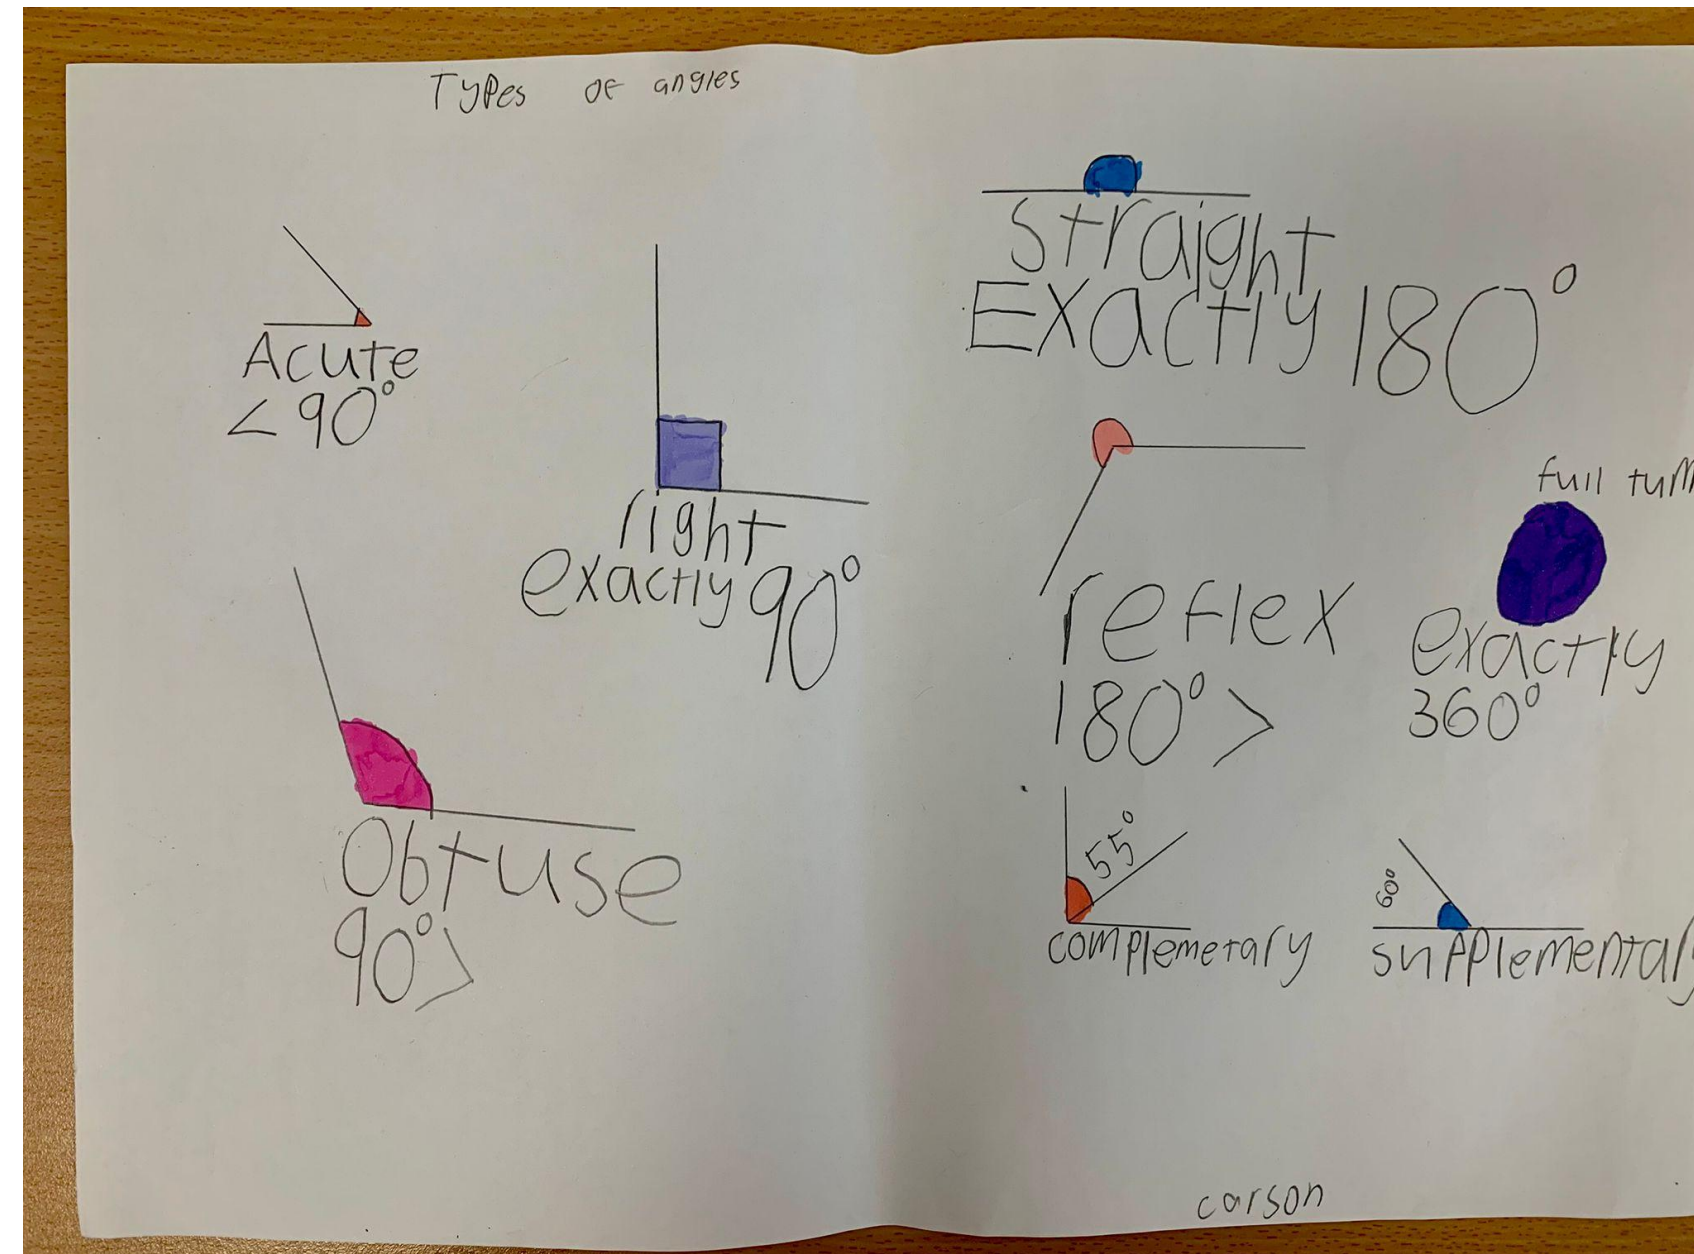 Types of angles
Acute
< 90°
right
exactly 90°
Obtuse
90° >
straight
Exactly 180°
reflex
180° >
full turn
exactly
360°
55°
complemetary
60°
supplementary
carson